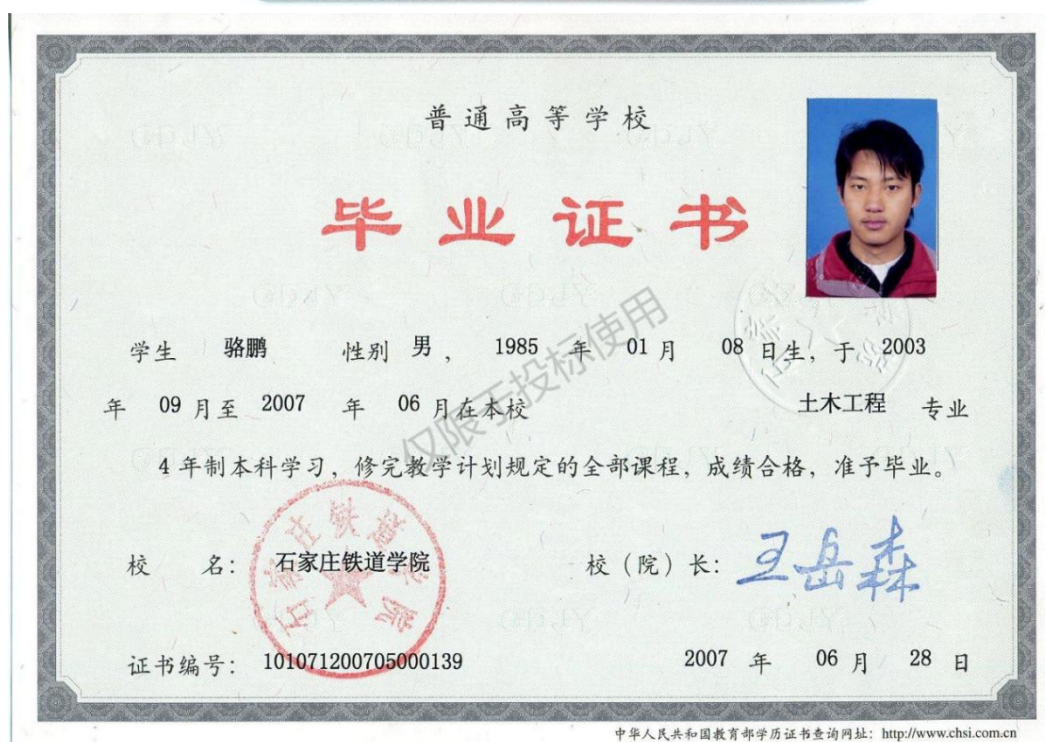 普通高等学校
毕业证书
学生 骆鹏 性别 男， 1985 年 01 月 08 日生，于 2003
年 09 月至 2007 年 06 月在本校 土木工程 专业
4 年制本科学习，修完教学计划规定的全部课程，成绩合格，准予毕业。
仅限于投标使用
校 名： 石家庄铁道学院 校（院）长： 王岳森
石家庄铁道学院
证书编号： 101071200705000139 2007 年 06 月 28 日
中华人民共和国教育部学历证书查询网址：http://www.chsi.com.cn